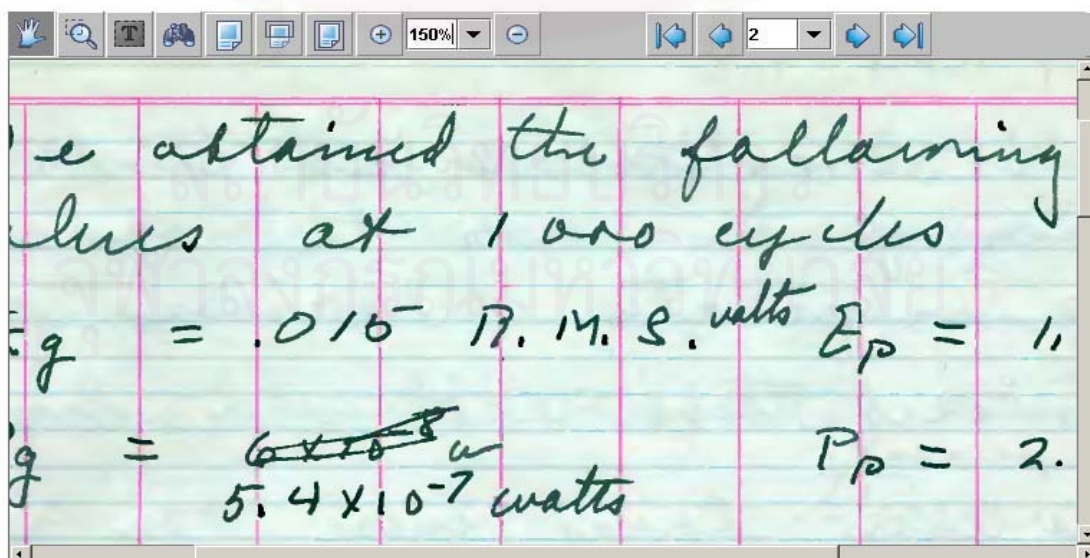 150% 2
e obtained the following
lues at 1000 cycles
g = .015 R.M.S. volts Ep = 1.
g = 6 x 10-8 w Pp = 2.
5.4 x 10-7 watts